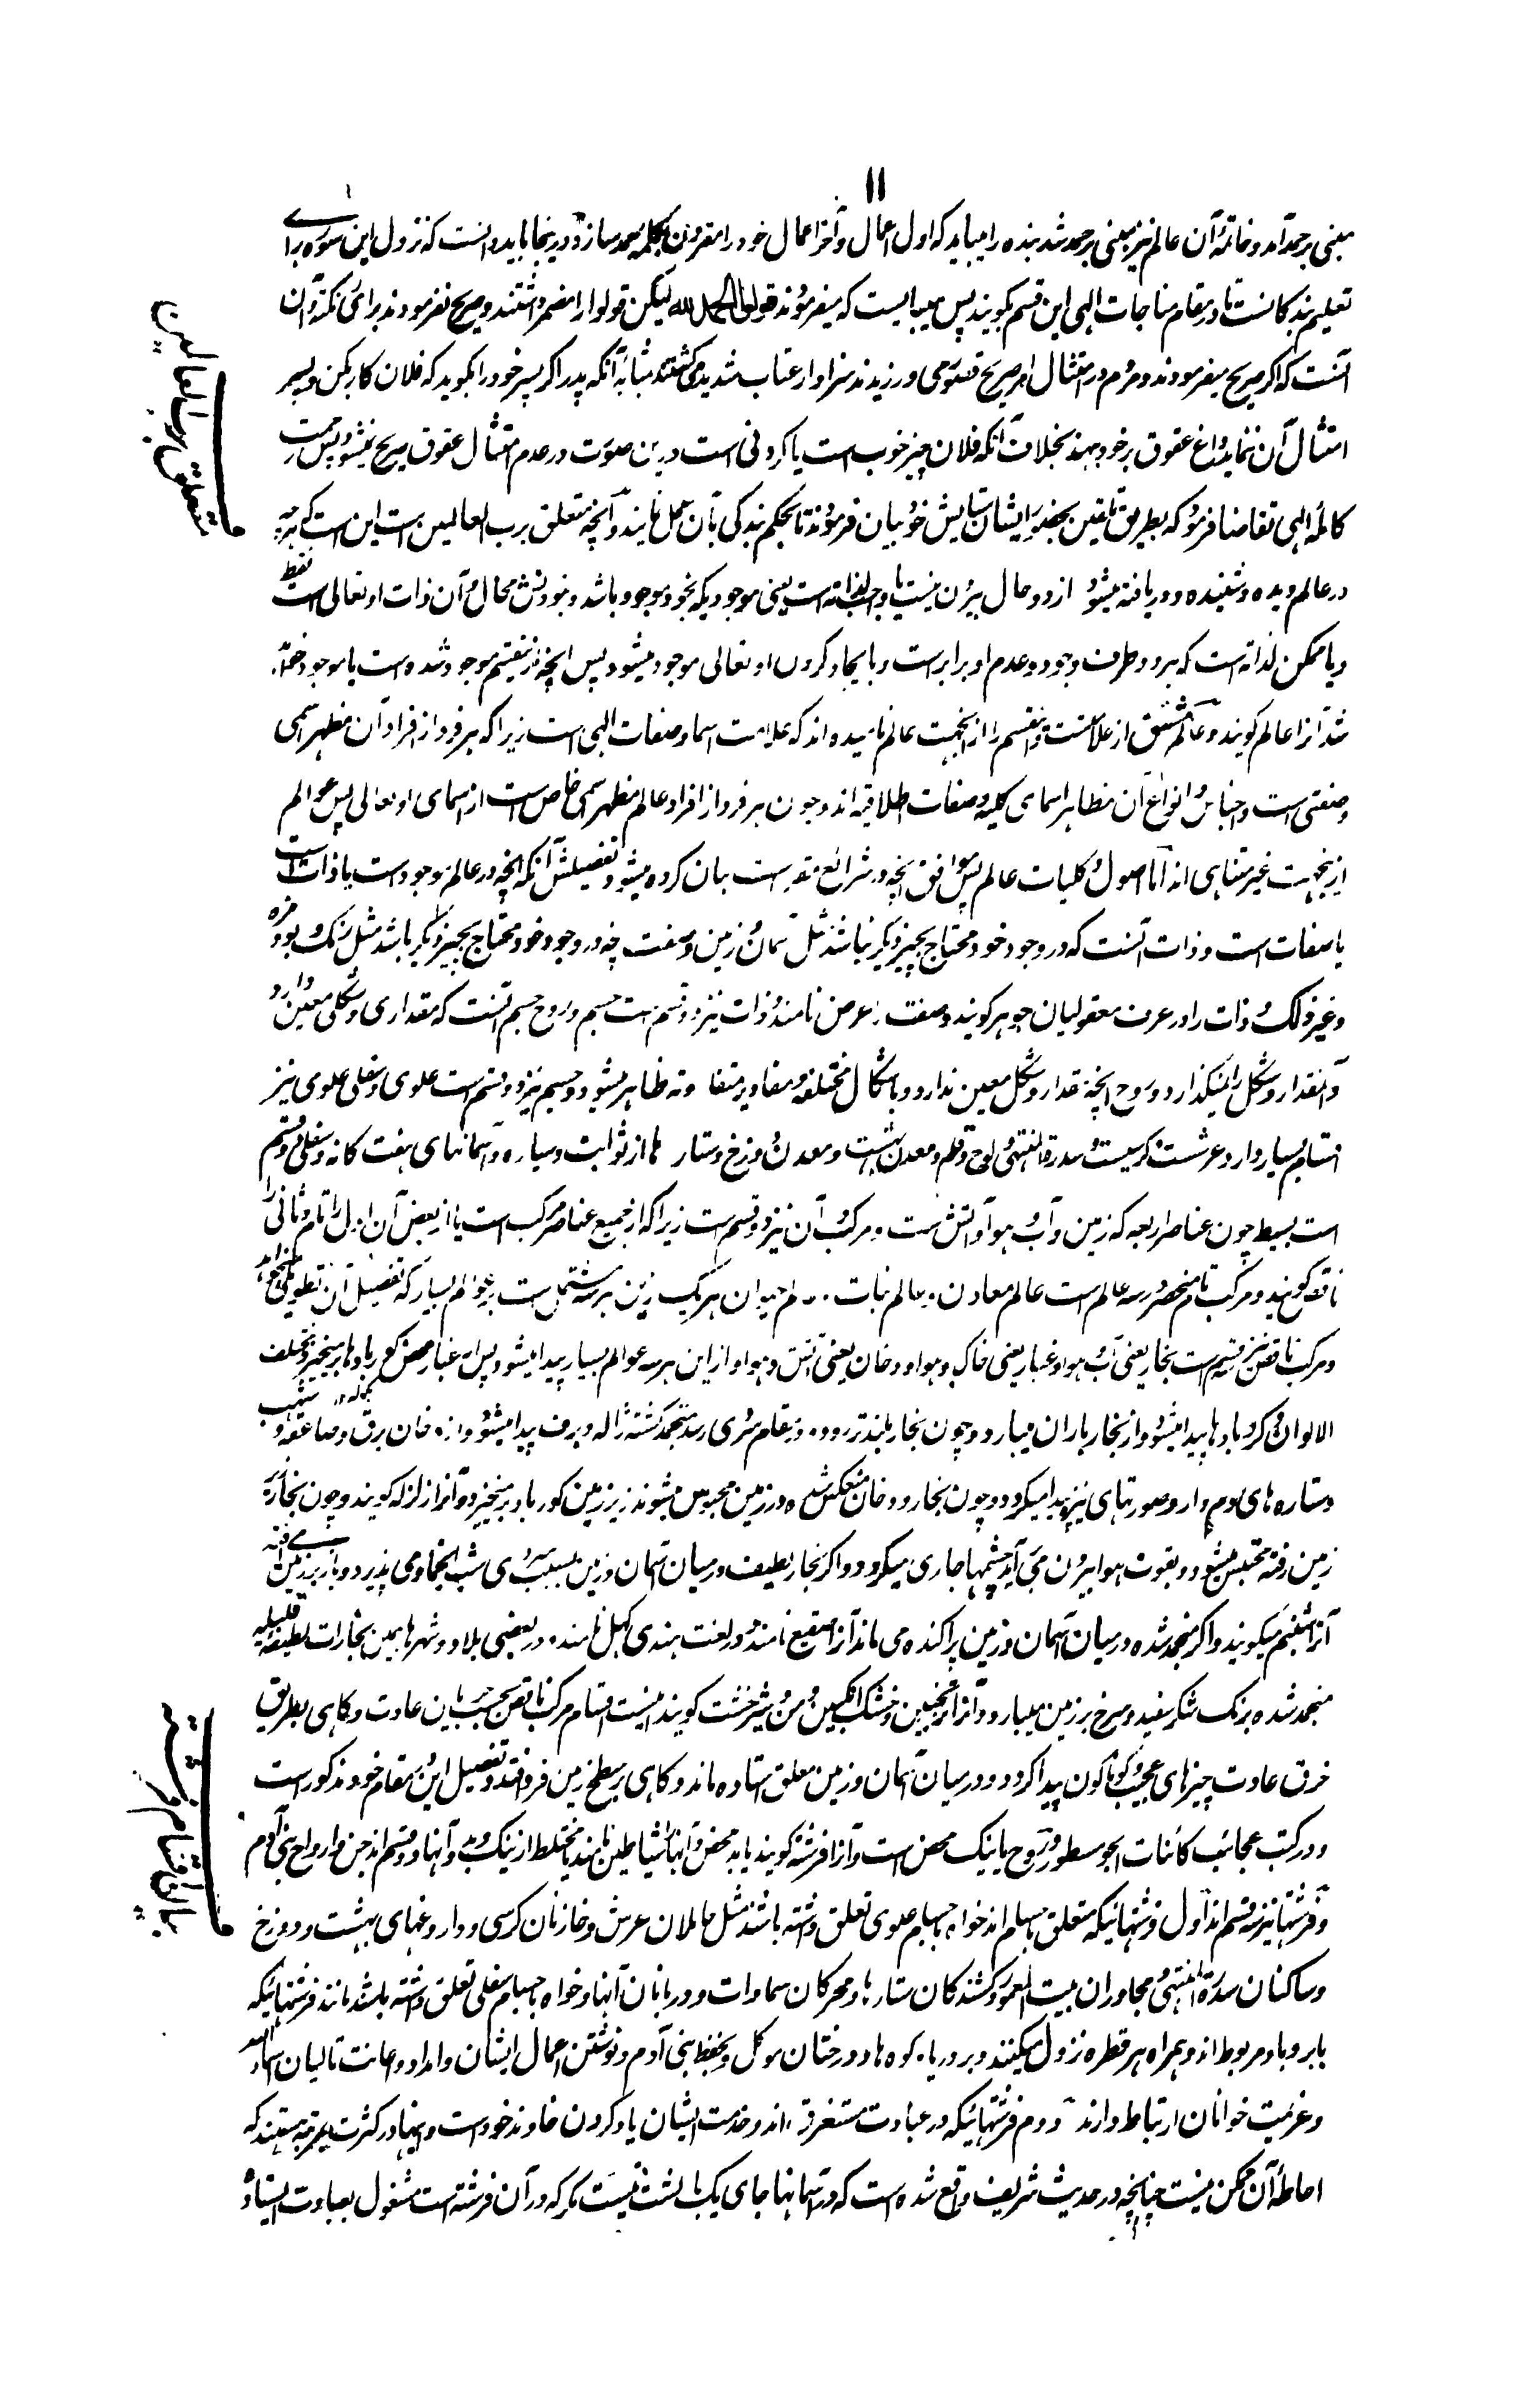 ۱۱
مبنی بر حمد آمد و خاتمهٔ آن عالم نیز مبنی بر حمد شد بنده را میباید که اول اعمال و آخر اعمال خود را مقرون بکلمه حمد سازد و درینجا باید دانست که نزول این سوره برای
تعلیم بندگانست تا در مقام مناجات الهی این قسم بگویند پس میبایست که میفرمودند قولوا الحمد لله لیکن قولوا را مضمر داشتند و صریح نفرمودند برای نکته و آن
آنست که اگر صریح میفرمودند و مردم در امتثال امر صریح قصوری می ورزیدند سزاوار عتاب شدید می گشتند بمثابه آنکه پدر اگر پسر خود را بگوید که فلان کار بکن و پسر
امتثال آن ننماید داغ عقوق بر خود بنهد بخلاف آنکه فلان چیز خوب است یا کردنی است درین صورت در عدم امتثال عقوق صریح نمیشود پس رحمت
کاملهٔ الهی تقاضا فرمود که بطریق تلقین بحضور ایشان ستایش خود بیان فرمودند تا بحکم بندگی بآن عمل نمایند و آنچه متعلق برب العالمین است این است که هرچه
در عالم دیده و شنیده و دریافته میشود از دو حال بیرون نیست یا واجب لذاته است یعنی موجودیکه بخود موجود باشد و نبودنش محال و آن ذات او تعالی است فقط
و یا ممکن لذاته است که هر دو طرف وجود و عدم او برابر است و بایجاد کردن او تعالی موجود میشود پس آنچه ازین قسم موجود شده است یا موجود خواهد
شد آنرا عالم گویند و عالم مشتق از علامت است و این قسم را ازین جهت عالم نامیده اند که علامت اسما و صفات الهی است زیرا که هر فرد از افراد آن مظهر اسمی
و صفتی است و اجناس و انواع آن مظاهر اسمای کلیه و صفات اطلاقیه اند و چون هر فرد از افراد عالم مظهر اسمی خاص است از اسمای او تعالی پس عوالم
ازین جهت غیر متناهی اند اما اصول و کلیات عالم پس موافق آنچه در شرائع مقرر است بیان کرده میشود تفصیلش آنکه آنچه در عالم موجود است یا ذات است
یا صفات است و ذات آنست که در وجود خود محتاج بچیز دیگر نباشد مثل آسمان و زمین و صفت آنچه در وجود خود محتاج بچیز دیگر باشد مثل رنگ و بو و مزه
و غیر ذلک و ذات را در عرف معقولیان جوهر گویند و صفت را عرض نامند و ذات نیز دو قسم است جسم و روح جسم آنست که مقداری و شکلی معین دارد
و آنمقدار و شکل را نمیگذارد و روح آنچه مقدار و شکل معین ندارد و باشکال مختلفه و مقادیر متفاوته ظاهر میشود و جسم نیز دو قسم است علوی و سفلی علوی نیز
اقسام بسیار دارد عرشست کرسیست و سدرة المنتهی و لوح و قلم و معدن بهشت و معدن دوزخ و ستارها از ثوابت و سیاره و آسمانهای هفت گانه و سفلی دو قسم
است بسیط چون عناصر اربعه که زمین و آب و هوا و آتش است و مرکب و آن نیز دو قسم است زیرا که از جمیع عناصر مرکب است یا از بعض آن اول را تام و ثانی را
ناقص گویند و مرکب تام منحصر در سه عالم است عالم معادن و عالم نبات و عالم حیوان هر یک ازین هر سه مشتمل است بر عوالم بسیار که تفصیل آن تطویل میخواهد
و مرکب ناقص نیز سه قسم است بخار یعنی آب و هوا و غبار یعنی خاک و هوا و دخان یعنی آتش و هوا و از این هر سه عوالم بسیار پیدا میشود پس از غبار محض گرد بادها برمیخیزد و مختلف
الالوان و گرد بادها پیدا میشود و از بخار باران میبارد و چون بخار بلند تر رود و بمقام سردی رسد منجمد گشته ژاله و برف پیدا میشود و از دخان برق و صاعقه و شهب
و ستاره های دم دار و صورتهای نیز پیدا میگردد و چون بخار و دخان منعکس شده در زمین محبوس میشوند زیر زمین گورباد برمیخیزد و آنرا زلزله گویند و چون بخار در
زمین رفته محتبس میشود و بقوت هوا بیرون می آید چشمها جاری میگردد و اگر بخار لطیف در میان آسمان و زمین بسبب سردی شب انجماد می پذیرد و باز بر زمین می افتد
آنرا شبنم میگویند و اگر منجمد شده در میان آسمان و زمین پراکنده می ماند آنرا صقیع نامند و در لغت هندی کهل نامند و در بعضی بلاد و شهرها همین بخارات لطیفه قلیله
منجمد شده برنگ شکر سفید و سرخ بر زمین میبارد و آنرا ترنجبین و خشک انگبین و من و شیر خشت گویند اینست اقسام مرکب ناقص بحسب جریان عادت و گاهی بطریق
خرق عادت چیزهای عجیب و گوناگون پیدا گردد و در میان آسمان و زمین معلق استاده ماند و گاهی بر سطح زمین فرو افتد و تفصیل این در مقام خود مذکور است
و در کتب عجائب کائنات الجو مسطور و روح یا نیک محض است و آنرا فرشته گویند یا بد محض و آنها را شیاطین نامند یا مختلط از نیک و بد و آنها دو قسم اند جن و ارواح بنی آدم
و فرشتها نیز سه قسم اند اول فرشتهائیکه متعلق باجسام اند خواه باجسام علوی تعلق داشته باشند مثل حاملان عرش و خازنان کرسی و داروغهای بهشت و دوزخ
و ساکنان سدرة المنتهی و مجاوران بیت المعمور و کشندگان ستارها و محرکان سماوات و دربانان آنها و خواه باجسام سفلی تعلق داشته باشند مانند فرشتهائیکه
بابر و باد مربوط اند و همراه هر قطره نزول میکنند و بر دریا و کوه ها و درختان موکل و بحفظ بنی آدم و نوشتن اعمال ایشان و امداد و اعانت تالیان اسماء الله
و عزیمت خوانان ارتباط دارند دوم فرشتهائیکه در عبادت مستغرق اند و خدمت ایشان یاد کردن خداوند خود است و اینها در کثرت بمرتبه هستند که
احاطهٔ آن ممکن نیست چنانچه در حدیث شریف واقع شده است که در آسمانها جای یک بالشت نیست مگر که در آن فرشته است مشغول بعبادت ایستاده
متعلق برب العالمین
بیان اقسام فرشته